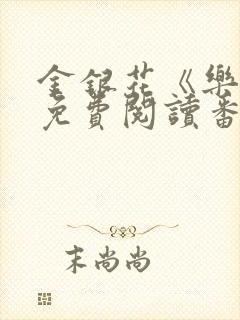 金銀花《樂
免費閱讀番
末尚尚